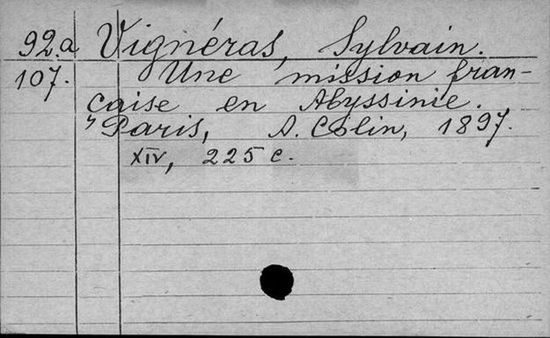 92.a Vignéras, Sylvain.
107. Une mission fran-
çaise en Abyssinie.
Paris, A. Colin, 1897.
XIV, 225 c.